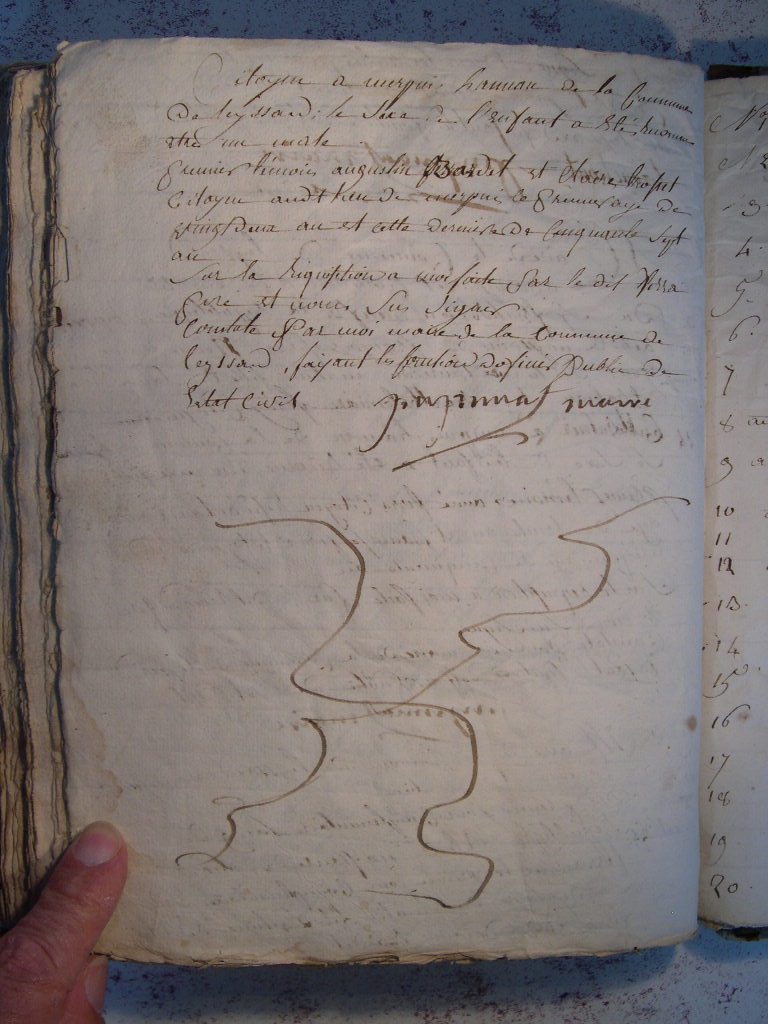 Citoyen a merpuis hamau de la Commune
de leyssard; le sexe de l'enfant a été reconnu
etre un male
premier témoin augustin et Claire
Citoyen audt lieu de merpuis le premier age de
vingt deux an et cette derniere de Cinquante Sept
an
Sur la Requisition a moi faite par le dit
pere et nous Sus Signer
Constaté Par moi maire de la Commune de
leyssard, faisant les fonction d'oficier Public de
letat Civil maire
3
4.
5.
6.
7
8
9
10
11
12
13.
14
15
16
17
18
19
20.